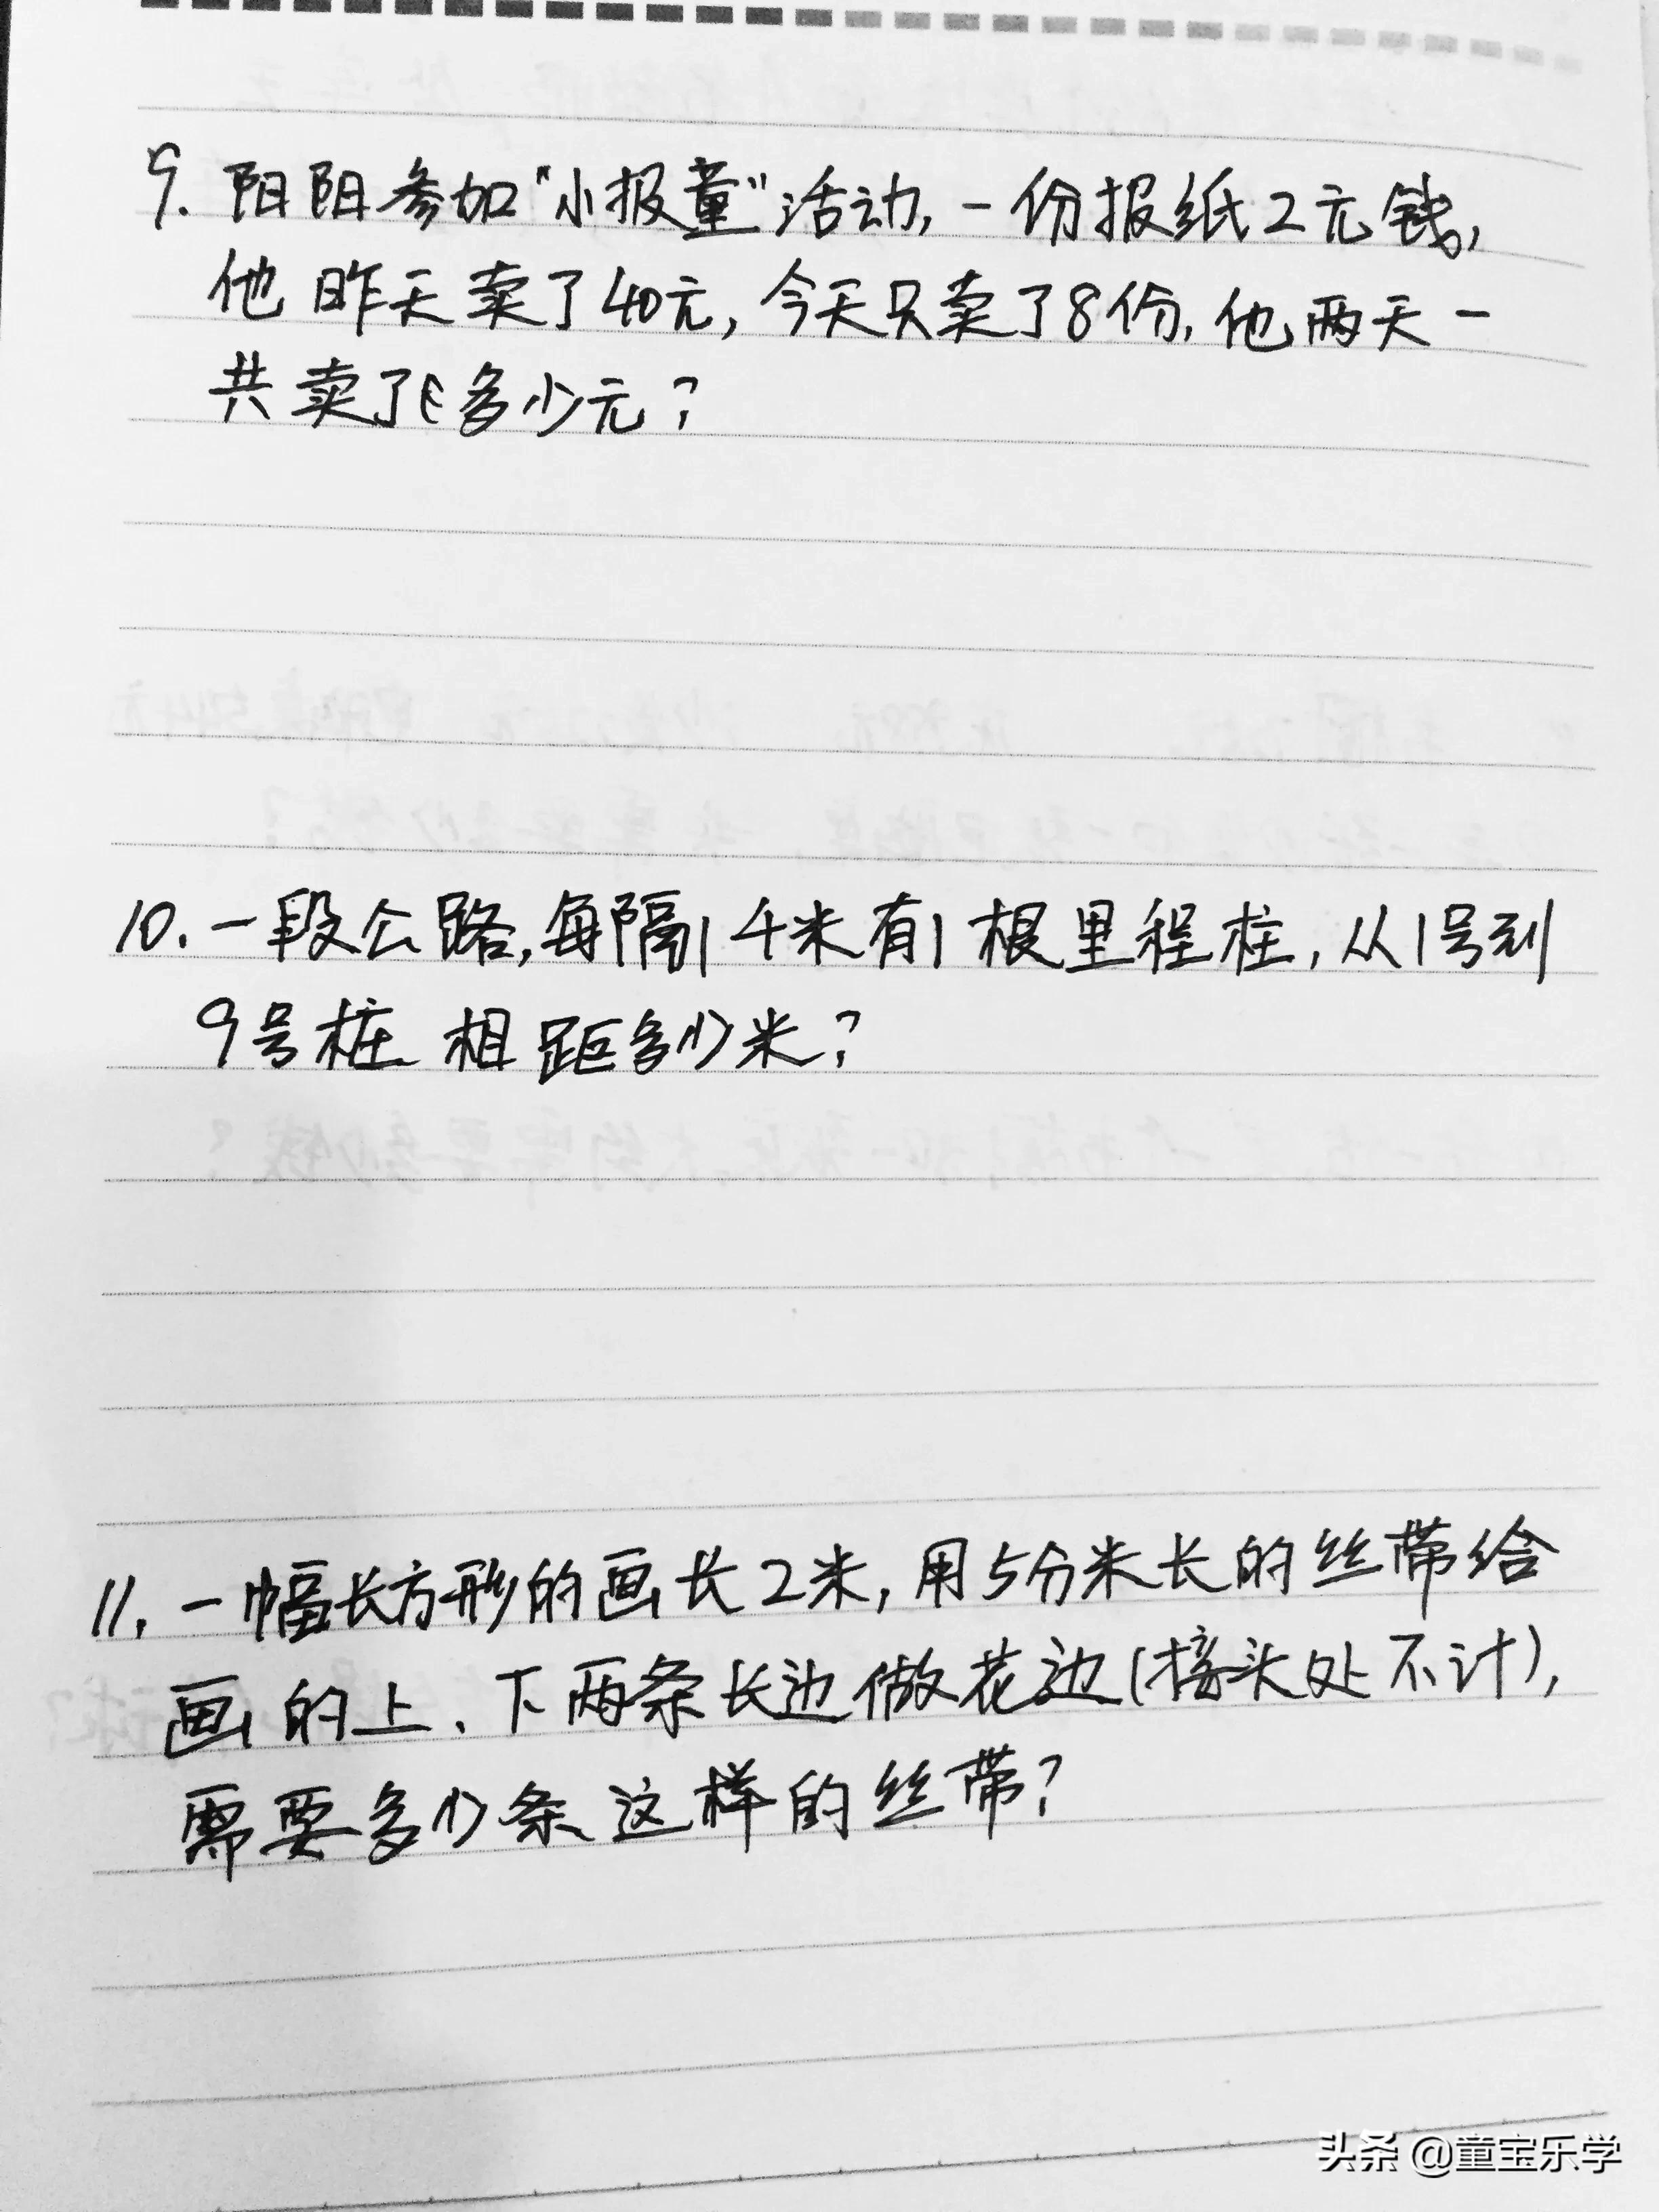 9. 阳阳参加“小报童”活动,一份报纸2元钱,
他昨天卖了40元,今天只卖了8份,他两天一
共卖了多少元?
10. 一段公路,每隔4米有1根里程桩,从1号到
9号桩相距多少米?
11. 一幅长方形的画长2米,用5分米长的丝带给
画的上、下两条长边做花边(接头处不计),
需要多少条这样的丝带?
头条 @童宝乐学